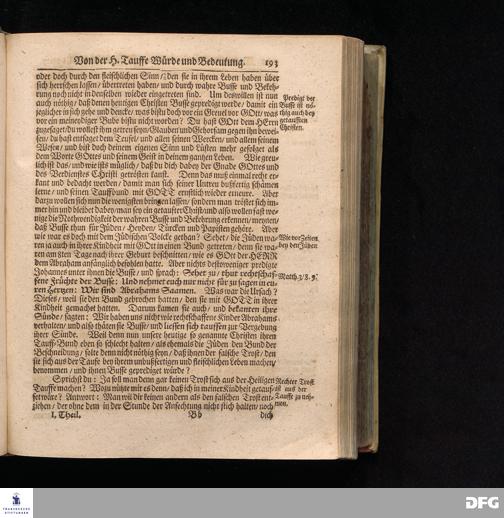 Von der H. Tauffe Würde und Bedeutung. 193
oder doch durch den fleischlichen Sinn / den sie in ihrem Leben haben über
sich herrschen lassen / übertreten haben / und durch wahre Busse und Bekeh-
rung noch nicht in denselben wieder eingetreten sind. Um deswillen ist nun
auch nöthig / daß denen heutigen Christen Busse geprediget werde / damit ein
jeglicher in sich gehe und dencke / was bistu doch vor ein Greuel vor GOtt / was
vor ein meineidiger Bube bistu nicht worden? Du hast GOtt dem HErrn
zugesaget / du wollest ihm getreu seyn / Glauben und Gehorsam gegen ihn bewei-
sen / du hast entsaget dem Teufel / und allen seinen Wercken / und allem seinem
Wesen / und bist doch deinem eigenen Sinn und Lüsten mehr gefolget als
dem Worte GOttes und seinem Geist in deinem gantzen Leben. Wie greu-
lich ist das / und wie ists müglich / daß du dich dabey der Gnade GOttes und
des Verdienstes Christi getrösten kanst. Denn das muß einmal recht er-
kant und bedacht werden / damit man sich seiner Untreu bußfertig schämen
lerne / und seinen Tauffbund mit GOTT ernstlich wieder erneure. Aber
darzu wollen sich nun die wenigsten bringen lassen / sondern man tröstet sich im-
mer hin und bleibet dabey / man sey ein getauffter Christ und also wollen fast we-
nige die Nothwendigkeit der wahren Busse und Bekehrung erkennen / meynen /
daß Busse thun für Jüden / Heyden / Türcken und Papisten gehöre. Aber
wie war es doch mit dem Jüdischen Volcke gethan? Sehet / die Jüden wa-
ren ja auch in ihrer Kindheit mit GOtt in einen Bund getreten / denn sie wa-
ren am 8ten Tage nach ihrer Geburt beschnitten / wie es GOtt der HERR
dem Abraham anfänglich befohlen hatte. Aber nichts destoweniger predigte
Johannes unter ihnen die Busse / und sprach: Sehet zu / thut rechtschaf-
fene Früchte der Busse; Und nehmet euch nur nicht für zu sagen in eu-
ren Hertzen: Wir sind Abrahams Saamen. Was war die Ursach?
Dieses / weil sie den Bund gebrochen hatten / den sie mit GOTT in ihrer
Kindheit gemachet hatten. Darum kamen sie auch / und bekanten ihre
Sünde / sagten: Wir haben uns nicht wie rechtschaffene Kinder Abrahams
verhalten / und also thäten sie Busse / und liessen sich tauffen zur Vergebung
ihrer Sünde. Weil denn nun unsere heutige so genannte Christen ihren
Tauff-Bund eben so schlecht halten / als ehemals die Jüden den Bund der
Beschneidung / solte denn nicht nöthig seyn / daß ihnen der falsche Trost / den
sie sich aus der Tauffe bey ihrem unbußfertigen und fleischlichen Leben machen /
benommen / und ihnen Busse geprediget würde?
Sprichst du: Ja soll man denn gar keinen Trost sich aus der Heiligen
Tauffe machen? Wozu nützte mir es denn / daß ich in meiner Kindheit getauf-
fet wäre? Antwort: Man wil dir keinen andern als den falschen Trost ent-
ziehen / der ohne dem in der Stunde der Anfechtung nicht stich halten / noch
I. Theil. Bb dich
Predigt der
Busse ist nö-
thig auch bey
getaufften
Christen.
Wie vor Zeiten
bey den Jüden
Matth. 3 / 8. 9.
Rechter Trost
ist aus der
Tauffe zu neh-
men.
FRANCKESCHE
STIFTUNGEN
DFG